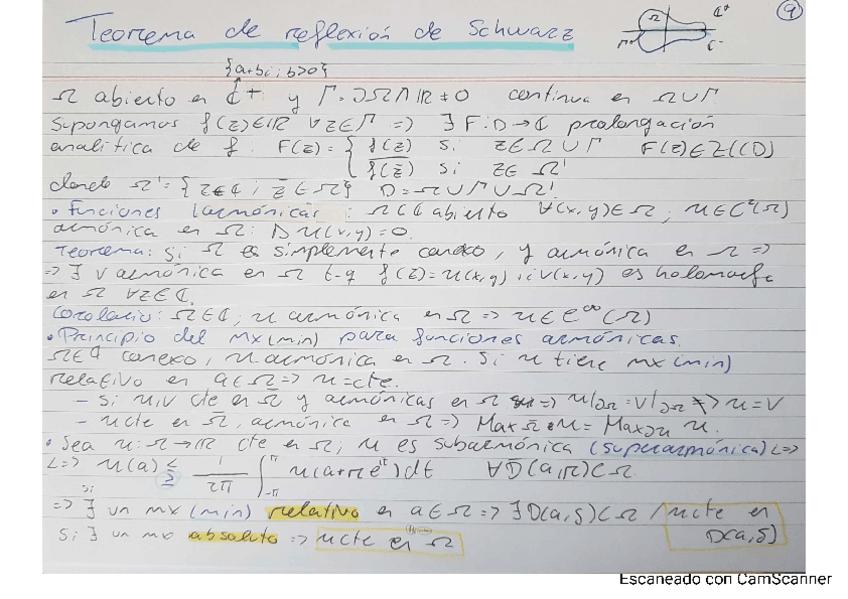 Teorema de reflexión de Schwarz
Ω ℂ⁺ Γ ℂ⁻
9
{a+bi; b>0}
Ω abierto en ℂ⁺ y Γ=∂Ω∩ℝ≠0 continua en Ω∪Γ
Supongamos f(z)∈ℝ ∀z∈Γ => ∃ F: D→ℂ prolongación
analítica de f: F(z)= { f(z) si z∈Ω∪Γ F(z)∈ℋ(D)
f(z̄)‾ si z∈Ω'
donde Ω'={z∈ℂ; z̄∈Ω} D=Ω∪Γ∪Ω'.
• Funciones armónicas: Ω⊂ℂ abierto ∀(x,y)∈Ω; u∈C²(Ω)
armónica en Ω: Δu(x,y)=0.
Teorema: si Ω es simplemente conexo, y armónica en Ω =>
=> ∃ v armónica en Ω t-q f(z)=u(x,y)+iv(x,y) es holomorfa
en Ω ∀z∈ℂ.
Corolario: Ω∈ℂ; u armónica en Ω => u∈C^∞(Ω)
• Principio del mx(min) para funciones armónicas.
Ω∈ℂ conexo, u armónica en Ω. Si u tiene mx(min)
relativo en a∈Ω => u=cte.
- si u,v cte en Ω̄ y armónicas en Ω => u/∂Ω=v/∂Ω => u=v
- u cte en Ω̄, armónica en Ω => Max Ω u = Max ∂Ω u.
• Sea u: Ω→ℝ cte en Ω; u es subarmónica (superarmónica) <=>
<=> u(a) ≤ ≥ 1/2π ∫_{-π}^{π} u(a+re^{it})dt ∀D̄(a,r)⊂Ω
si
=> ∃ un mx(min) relativo en a∈Ω => ∃D(a,δ)⊂Ω / u cte en
D(a,δ)
Si ∃ un mx absoluto => u cte en Ω
Escaneado con CamScanner